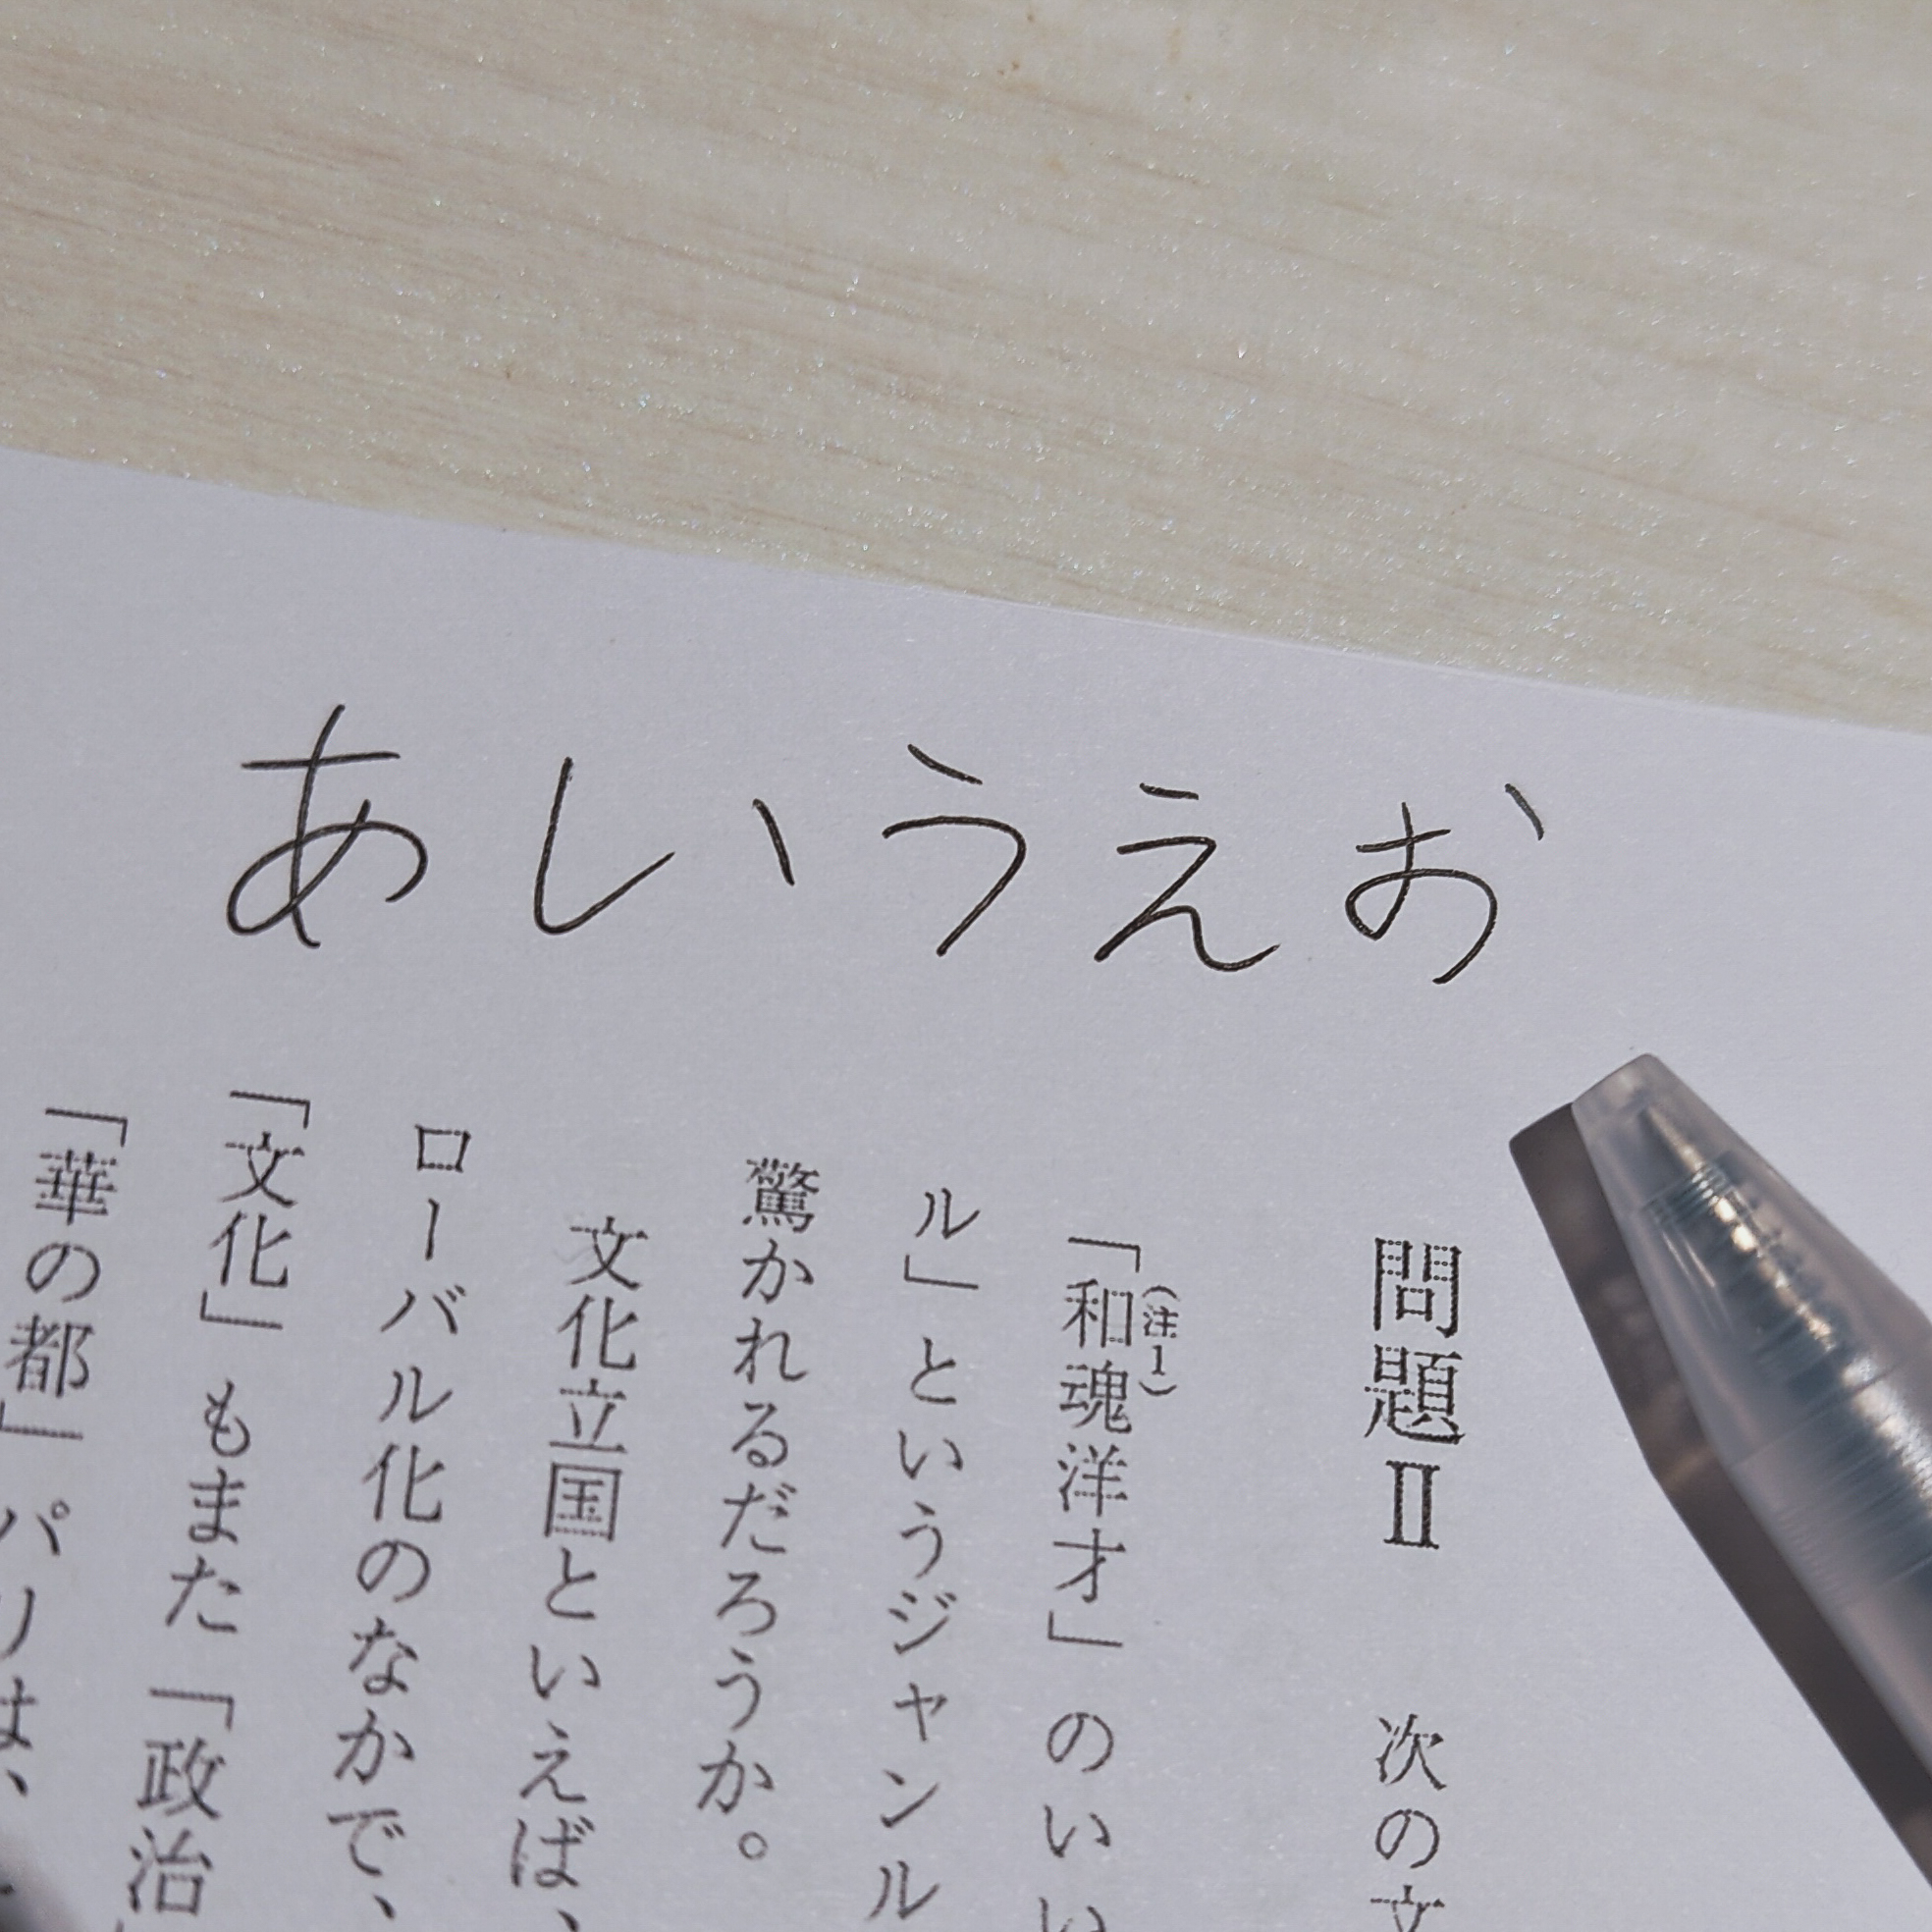 あいうえお
問題Ⅱ　次の文
「和魂洋才」のいい
(注1)
ル」というジャンル
驚かれるだろうか。
文化立国といえば、
ローバル化のなかで、
「文化」もまた「政治
「華の都」パリは、